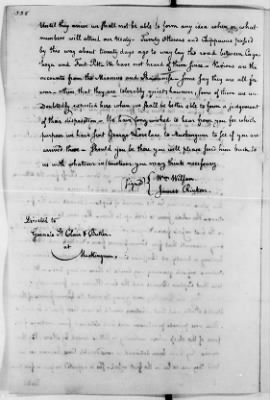 Until they arrive we shall not be able to form any idea when or what
number will attend our treaty. Twenty Ottawas and Chippawas passed
by this way about twenty days ago to way lay the road between Cay-
hoga and Fort Pitt. We have not heard of them since. Various are the
accounts from the Shawanese. Some say they are all for
war others that they are tolerably quiet; however, some of them are un-
doubtedly expected here when we shall be better able to form a judgement
of their disposition. We have long wished to hear from you, for which
purpose we have sent George to Muskingum to see if you are
arrived there. Should you be there you will please send him back to
us with whatever instructions you may think necessary
(Signed) { Wm Wilson
James Rinkin
Directed to
Generals St Clair & Butler
at
Muskingum